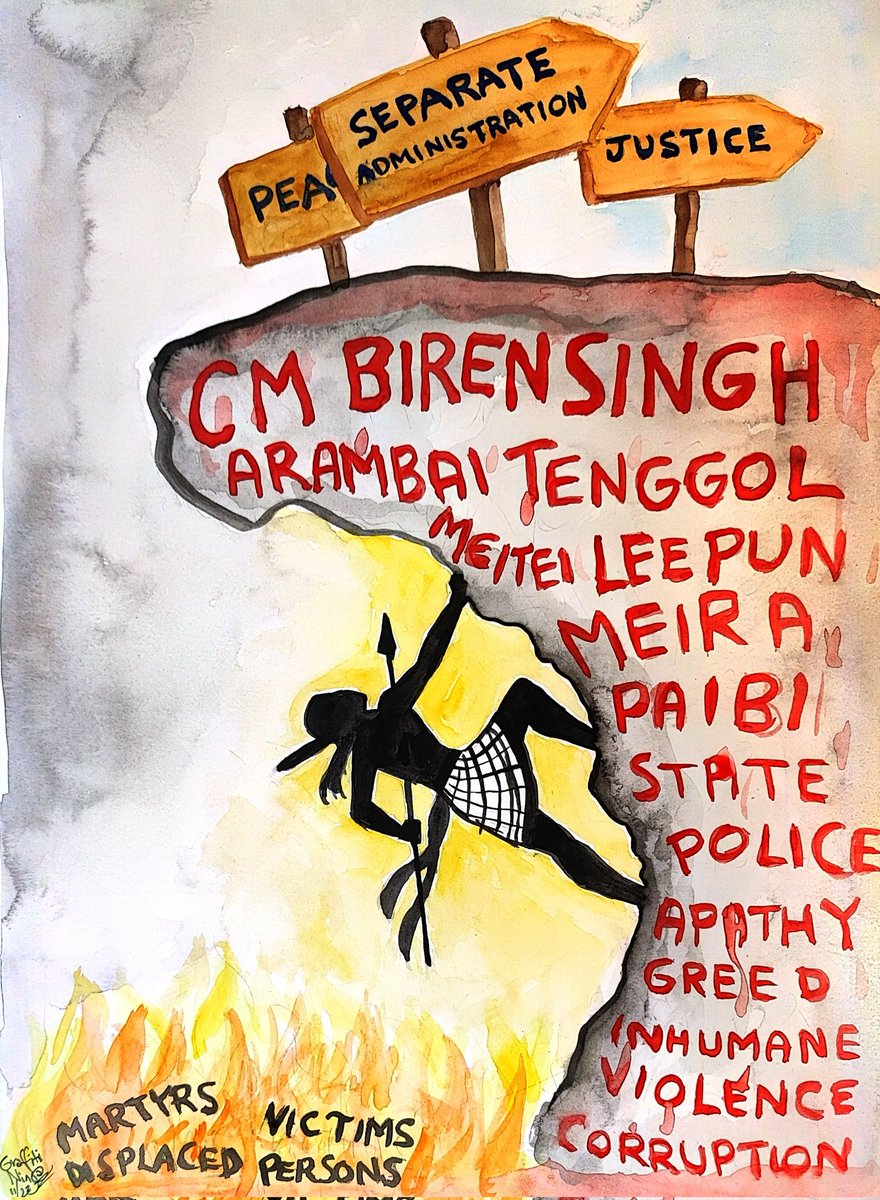 SEPARATE
ADMINISTRATION
PEA
JUSTICE
CM BIREN SINGH
ARAMBAI TENGGOL
MEITEI LEEPUN
MEIRA
PAIBI
STATE
POLICE
APATHY
GREED
INHUMANE
VIOLENCE
CORRUPTION
MARTYRS VICTIMS
DISPLACED PERSONS
Graffiti